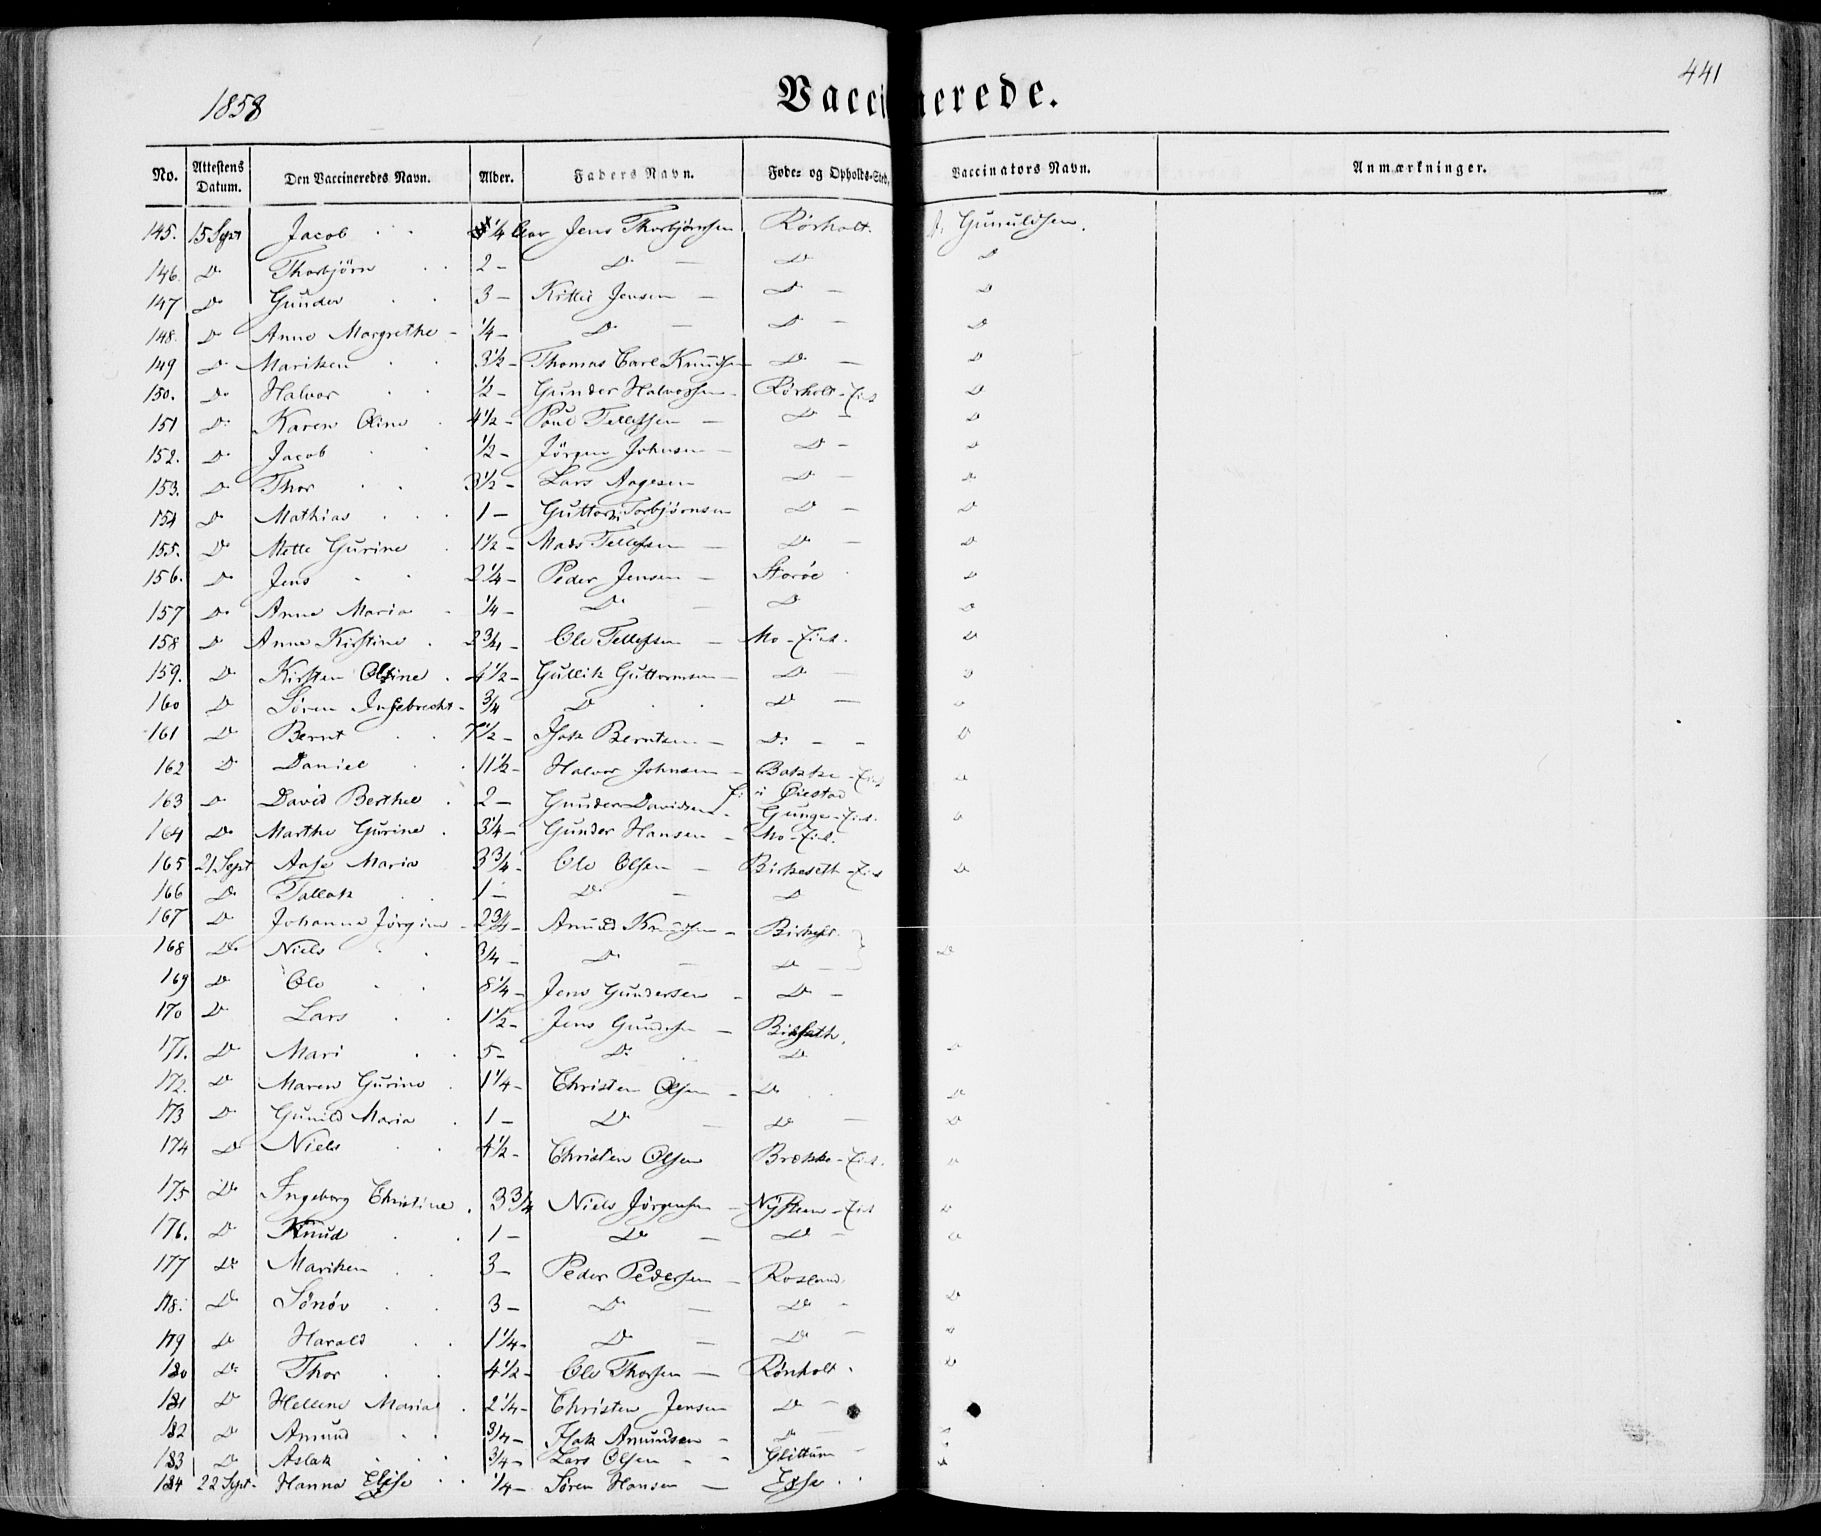 441
1858
Vaccinerede.
No. Attestens Datum. Den Vaccineredes Navn. Alder. Faders Navn. Føde- og Opholds-Sted. Vaccinators Navn. Anmærkninger.
145. 15 Sept Jacob 1/4 Aar Jens Thorbjørnsen Rørholt. Gunuldsen.
146. Do Thorbjørn 2 - Do - Do Do
147 Do Gunder 3 - Kittil Jensen - Do - Do
148. Do Anne Margrethe - 1/4 - Do - Do - Do
149 Do Mariken 3 1/2 - Thomas Carl Knudsen Do - Do
150. Do Halvor 1/2 - Gunder Halvorsen - Rørholt - Eiet Do
151 Do Karen Oline 4 1/2 - Poul Tellefsen - Do - Do
152. Do Jacob 1/2 - Jörgen Johnsen - Do - Do
153. Do Thor 3 1/2 - Lars Aagesen Do - Do
154 Do Mathias 1 - Guttorm Torbjørnsen Do - Do
155. Do Mette Gurine 1 1/2 - Mads Tellefsen - Do - Do
156. Do Jens 2 1/4 - Peder Jensen - Storöe Do
157 Do Anne Maria 1/4 - Do - Do Do
158 Do Anne Kirstine 2 3/4 - Ole Tellefsen - Mo - Eiet. Do
159. Do Kirsten Oline 4 1/2 - Gullik Guttormsen - Do - Do
160 Do Søren Ingebrecht - 3/4 Do Do - Do
161 Do Bernt 7 1/2 - Isak Berntsen - Do - - Do
162 Do Daniel 11 1/2 - Halvor Johnsen - Bakke - Eiet Do
163 Do David Berthel 2 - Gunder Davidsen - i Øiestad Gunge - Eiet. Do
164 Do Marthe Gurine 3 1/4 - Gunder Hansen - Mo - Eiet.
165 21 Sept Aase Maria 3 3/4 - Ole Olsen - Birkeseth - Eiet Do
166 Do Tallak 1 - Do - Do
167 Do Johanne Jørgine - 2 3/4 - Amund Knudsen - 
168 Do Niels 3/4 - Do - Do - Do
169 Do Ole 8 1/4 - Jens Gundersen - Do -
170 Do Lars 1 1/2 - Jens Gundersen -
171. Do Mari 5 - Do Do Do
172. Do Maren Gurine 1 1/4 - Christen Olsen - Do Do
173 Do Gunild Maria 1 - Do - Do - Do
174 Do Niels 4 1/2 - Christen Olsen Brekke - Eiet. Do
175 Do Ingeborg Christine 3 3/4 Niels Jørgensen - Eiet Do
176. Do Knud 1 - Do - Do - Do
177 Do Mariken 3 - Peder Pedersen - Rosland
178. Do Sönöv 3 - Do - Do - Do
179 Do Harald 1 1/4 - Do - Do - Do
180 Do Thor 4 1/2 - Ole Thorsen - Rönholt Do
181 Do Hellene Maria 2 1/4 - Christen Jensen Do -
182 Do Amund 3/4 - Isak Amundsen - Do - Do
183 Do Aslak 3/4 - Lars Olsen - - Glittum - Do
184 22 Sept. Hanna Elise 1/4 - Søren Hansen -